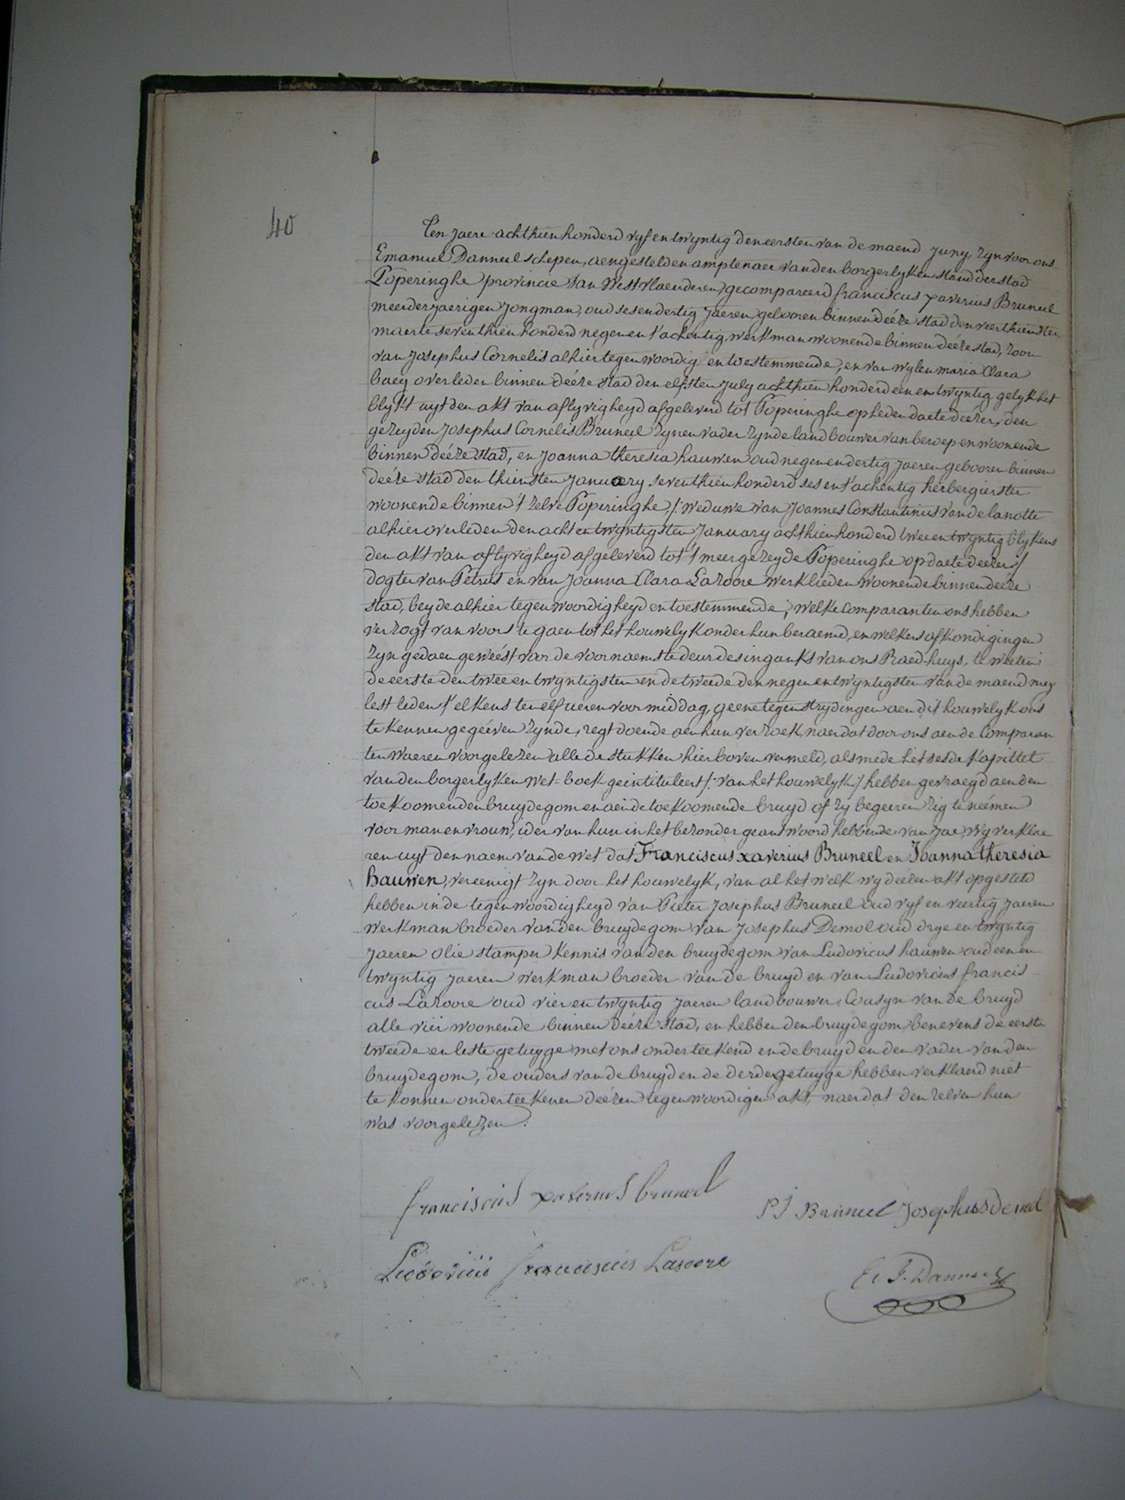 40
Ten jaere achthien honderd vyf en twyntig den eersten van de maend Juny, zyn voor ons
Emanuel Danneel schepen, aengestelden amptenaer van den borgerlyken stand der stad
Poperinghe provincie van Westvlaenderen, gecompareerd franciscus xaverius Bruneel
meerderjaerigen Jongman, oud sesendertig Jaeren, gebooren binnen deéze stad den veerthienster
maerte seventhien honderd negen en t'achentig, werkman woonende binnen deéze stad, zoon
van Josephus Cornelis alhier tegenwoordig en toestemmende, en van wylen maria Clara
baey overleden binnen deéze stad den elfsten July achthien honderd een en twyntig gelyk het
blykt uyt den akt van aflyvigheyd afgeleverd tot Poperinghe op heden daete deézer, den
gezeyden Josephus Cornelis Bruneel zynen vader zynde landbouwer van beroep en woonende
binnen deéze stad, en Joanna theresia hauwen oud negenendertig Jaeren gebooren binnen
deéze stad den thiensten January seventhien honderd ses en t'achentig herbergierster
woonende binnen 't zelve Poperinghe /: Weduwe van Joannes Constantinus vandelanotte
alhier overleden den acht en twyntigsten January achthien honderd twee en twyntig blykens
den akt van aflyvigheyd afgeleverd tot 't meergezeyde Poperinghe op daete deézer :/
dogter van Petrus en van Joanna Clara Lazoore werklieden woonende binnen deéze
stad, beyde alhier tegenwoordigheyd en toestemmende; welke Comparanten ons hebben
verzogt van voorts te gaen tot het houwelyk onder hun beraemd, en welkers afkondigingen
zyn gedaen geweest voor de voornaemste deur des ingank's van ons Raed-huys, te weeten
de eerste den twee en twyntigsten en de tweede den negen en twyntigsten van de maend mey
lest leden t'elkens ten elf ueren voor middag, geene tegenstrydingen aen dit houwelyk ons
te kennen gegeéven zynde, regt doende aen hun verzoek naer dat door ons aen de Comparan
ten waeren voorgelezen alle de stukken hier boven vermeld, als mede het sesde kapittel
van den borgerlyken wet-boek geintituleert /: van het houwelyk :/ hebben gevraegd aen den
toekoomenden bruydegom en aen de toekoomende bruyd of zy begeeren zig te neémen
voor man en vrouw, ider van hun in het bezonder geantwoord hebbende van Jae, Wy verklae
ren uyt den naem van de wet dat Franciscus xaverius Bruneel en Joanna theresia
hauwen, vereenigt zyn door het houwelyk, van al het welk wy deézen akt opgesteld
hebben in de tegenwoordigheyd van Pieter Josephus Bruneel oud vyf en veertig Jaeren
werkman broeder van den bruydegom van Josephus Demol oud drye en twyntig
Jaeren olie stamper kennis van den bruydegom van Ludovicus hauwen oud een en
twyntig Jaeren werkman broeder van de bruyd en van Ludovicus francis
cus Lazoore oud vier en twyntig Jaeren landbouwer Cousyn van de bruyd
alle vier woonende binnen deéze stad, en hebben den bruydegom benevens de eerste
tweede en leste getuyge met ons onderteekend en de bruyd en den vader van den
bruydegom, de ouders van de bruyd en de derde getuyge hebben verklaerd niet
te konnen onderteekenen deézen tegenwoordigen akt, naer dat den zelven hun
was voorgelezen.
franciscus xaverius bruneel
P J Bruneel Josephus de mol
Ludovicus franciscus Lasoore
E. F. Danneel